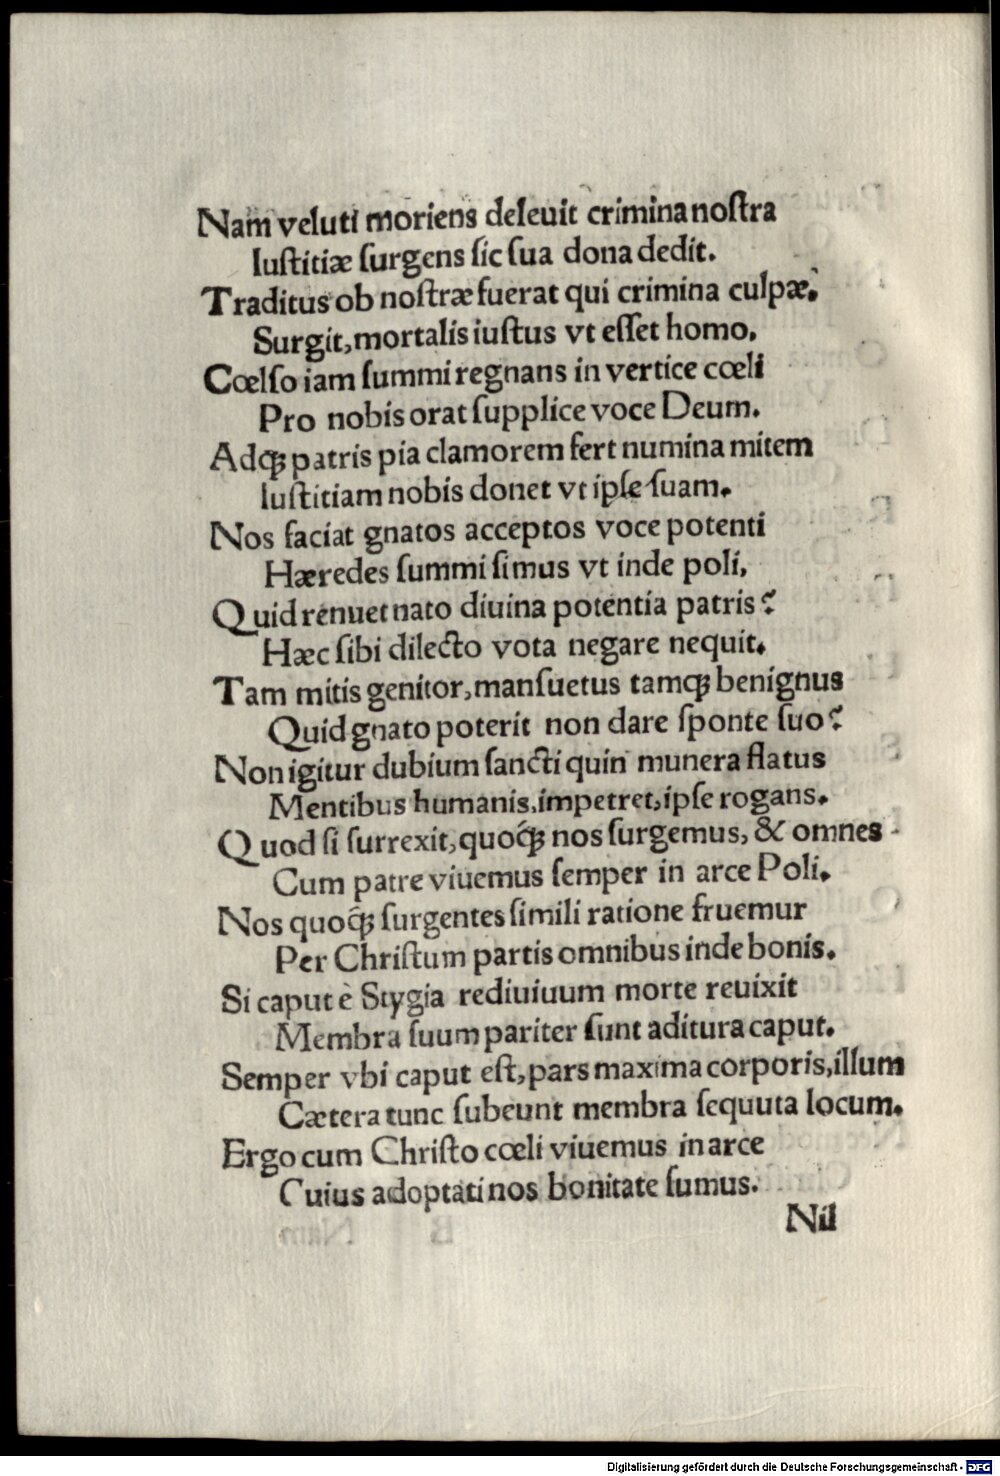 Nam veluti moriens deleuit crimina noſtra
Iuſtitiæ ſurgens ſic ſua dona dedit.
Traditus ob noſtræ fuerat qui crimina culpæ,
Surgit, mortalis iuſtus vt eſſet homo,
Cœlſo iam ſummi regnans in vertice cœli
Pro nobis orat ſupplice voce Deum.
Adqꝫ patris pia clamorem fert numina mitem
Iuſtitiam nobis donet vt ipſe ſuam.
Nos faciat gnatos acceptos voce potenti
Hæredes ſummi ſimus vt inde poli,
Quid renuet nato diuina potentia patris?
Hæc ſibi dilecto vota negare nequit.
Tam mitis genitor, manſuetus tamqꝫ benignus
Quid gnato poterit non dare ſponte ſuo?
Non igitur dubium ſancti quin munera flatus
Mentibus humanis, impetret, ipſe rogans.
Quod ſi ſurrexit, quoqꝫ́ nos ſurgemus, & omnes
Cum patre viuemus ſemper in arce Poli.
Nos quoqꝫ́ ſurgentes ſimili ratione fruemur
Per Chriſtum partis omnibus inde bonis.
Si caput è Stygia rediuiuum morte reuixit
Membra ſuum pariter ſunt aditura caput.
Semper vbi caput eſt, pars maxima corporis, illum
Cætera tunc ſubeunt membra ſequuta locum.
Ergo cum Chriſto cœli viuemus in arce
Cuius adoptati nos bonitate ſumus.
Nil
Digitalisierung gefördert durch die Deutsche Forschungsgemeinschaft - DFG